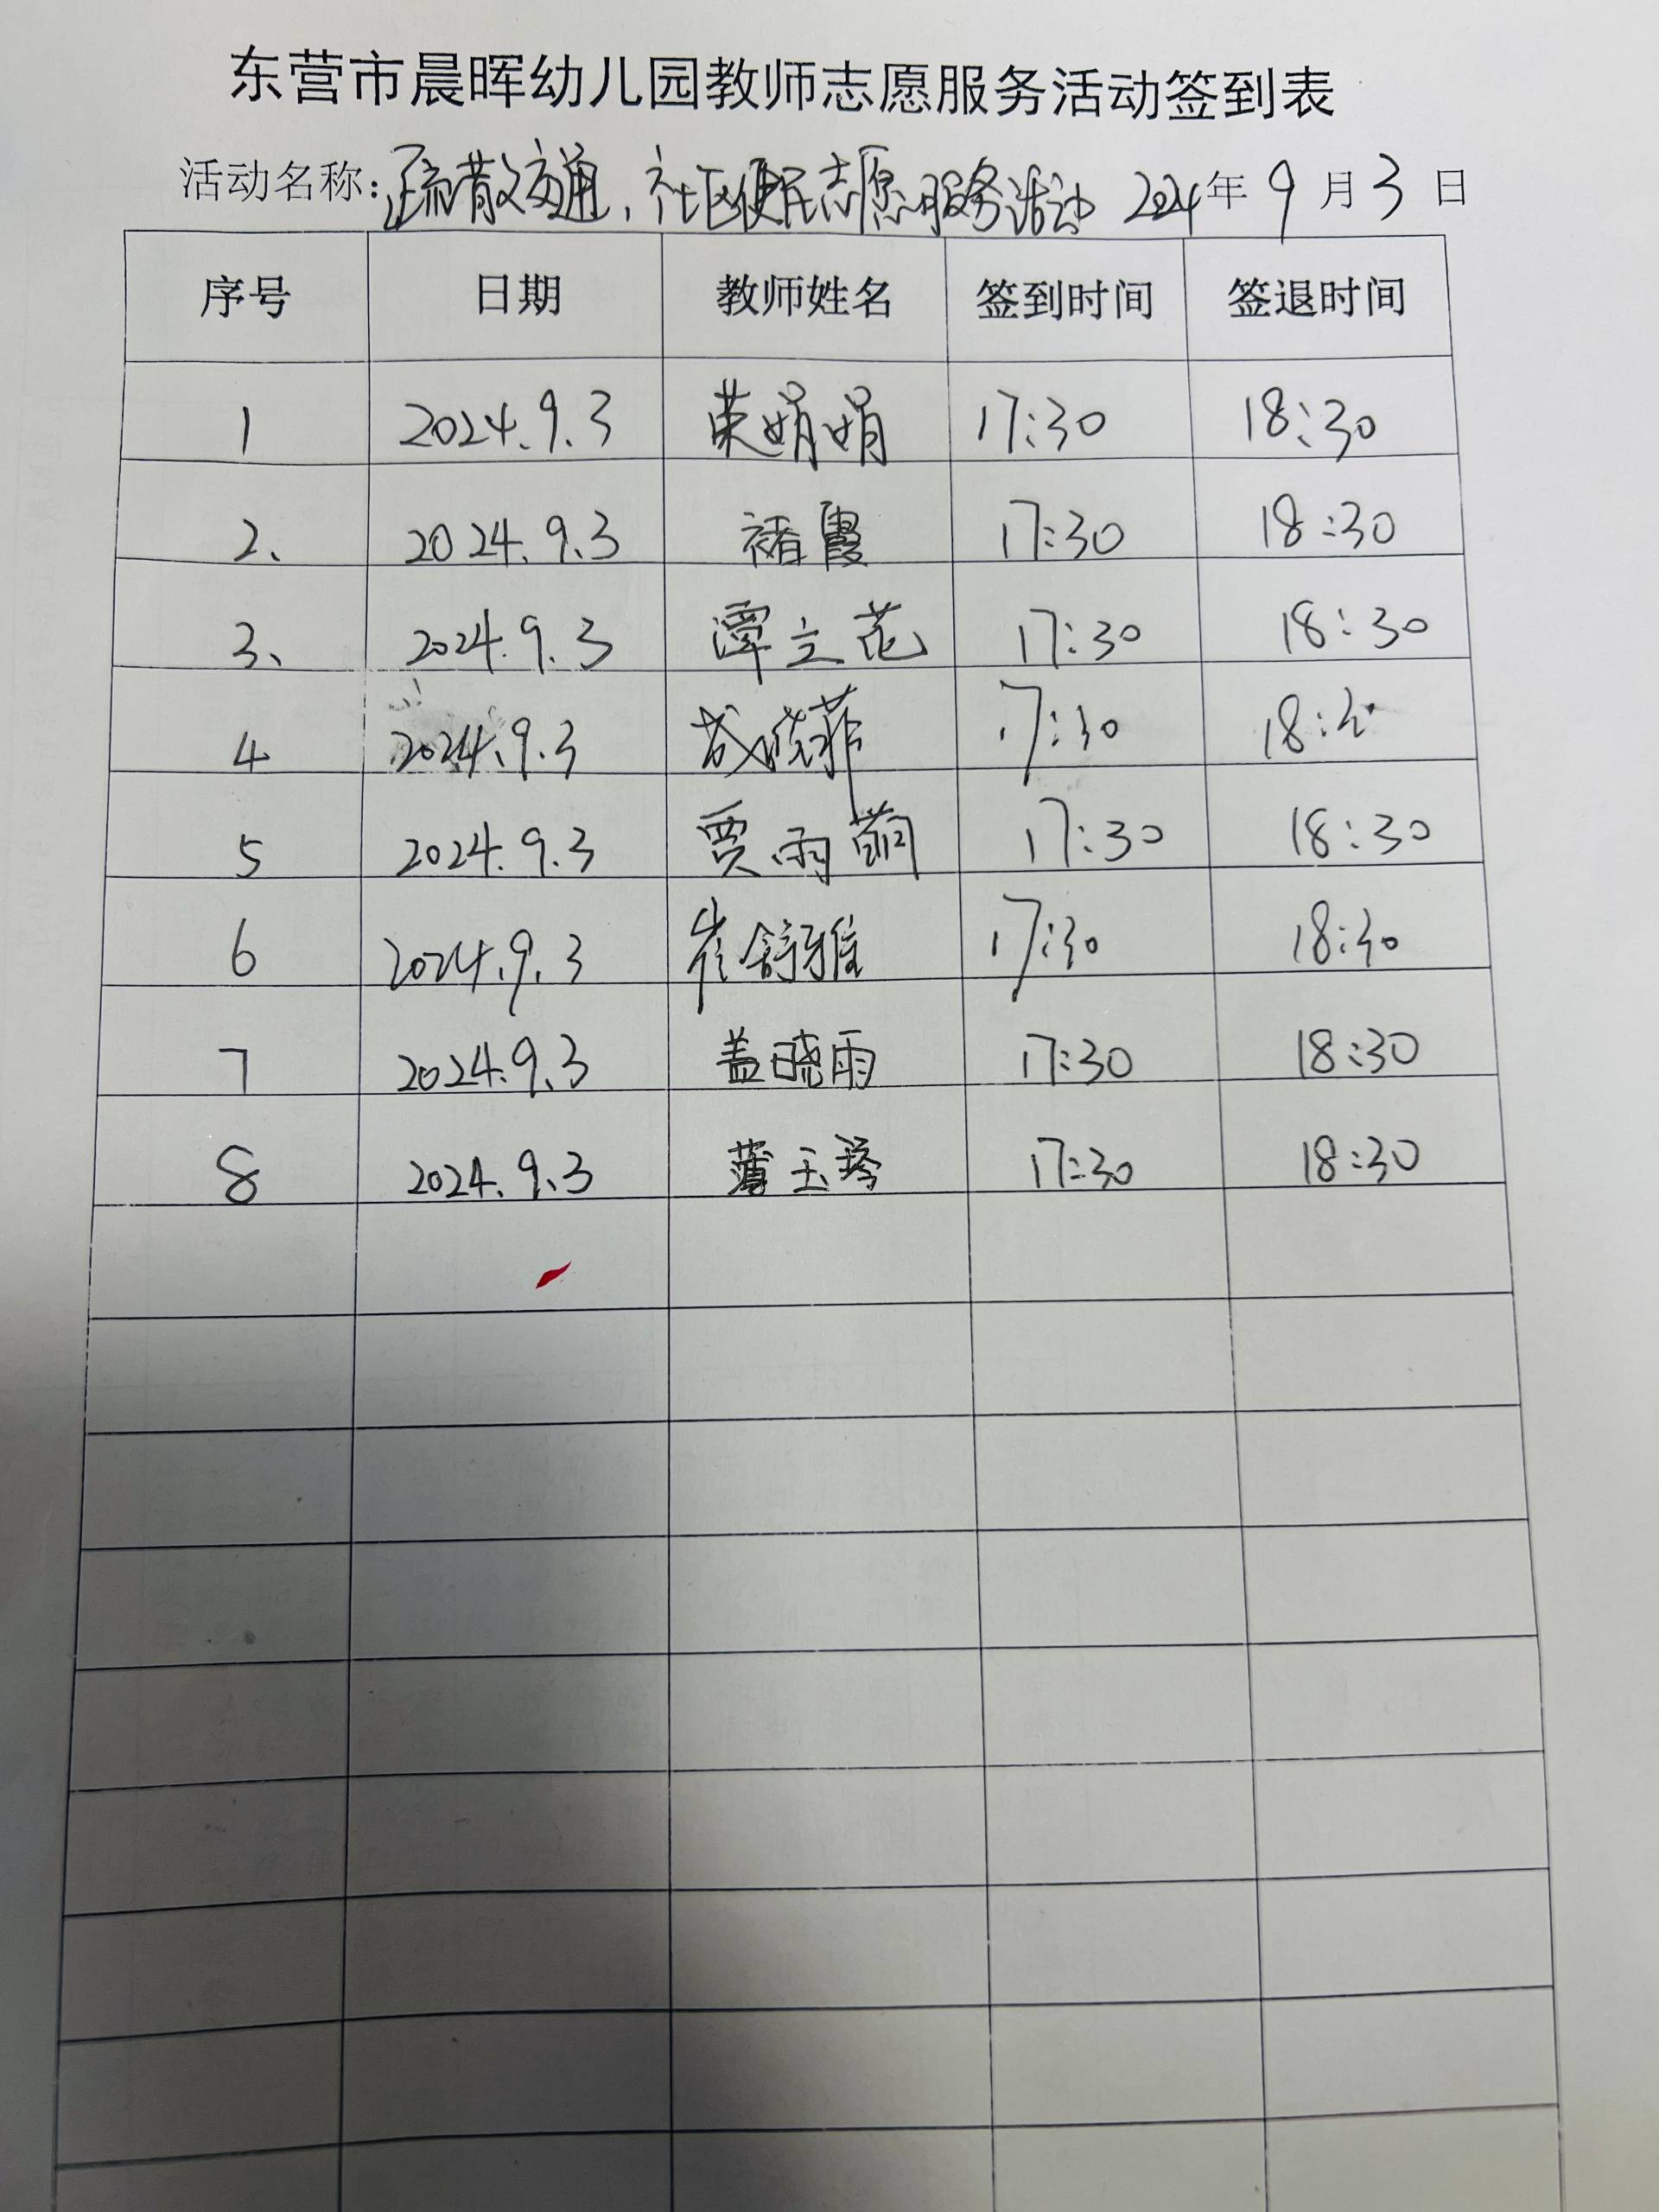 东营市晨晖幼儿园教师志愿服务活动签到表
活动名称:疏散交通,社区便民志愿服务活动 2024年9月3日
序号 日期 教师姓名 签到时间 签退时间
1 2024.9.3 荣娟娟 17:30 18:30
2、 2024.9.3 褚霞 17:30 18:30
3、 2024.9.3 谭立花 17:30 18:30
4 2024.9.3 晓菲 17:30
5 2024.9.3 贾雨萌 17:30 18:30
6 2024.9.3 崔舒雅 17:30 18:30
7 2024.9.3 盖晓雨 17:30 18:30
8 2024.9.3 薄玉琴 17:30 18:30